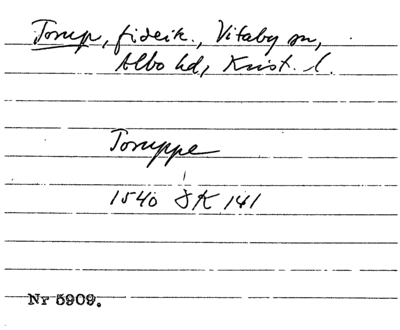 Torup, fideik., Vitaby sn,
Albo hd, Krist. l.
Toruppe
1540 JK 141
Nr 5909.